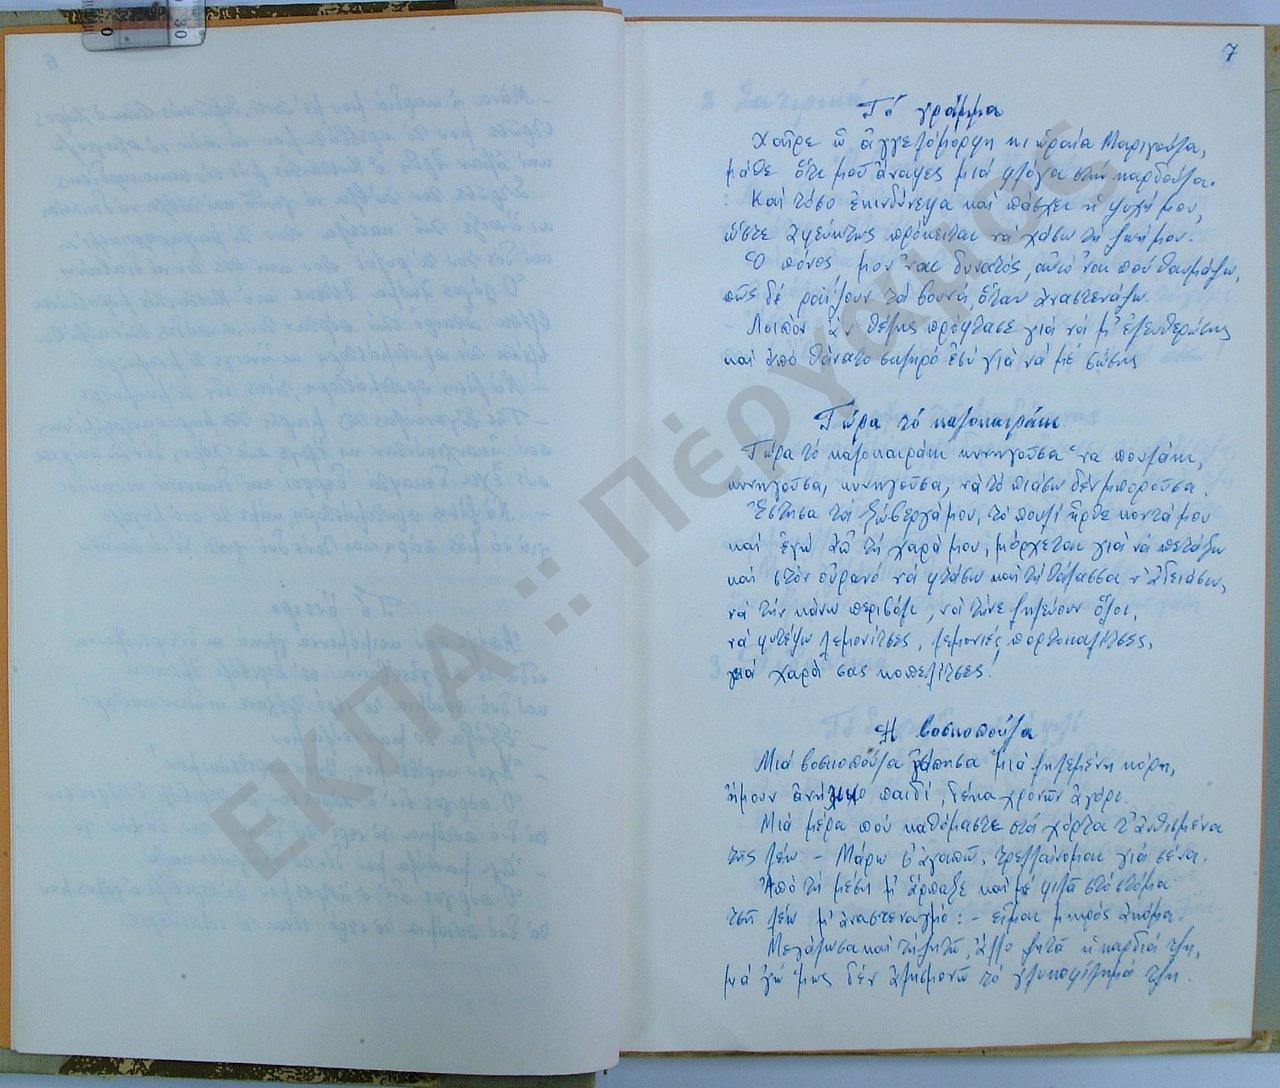 7
Τό γράμμα
Χαῖρε ὦ ἀγγελόμορφη κι ὡραία Μαριγούλα,
μάθε ὅτι μοῦ ἄναψες μιά φλόγα στήν καρδούλα.
Καί τόσο ἐκινδύνεψα καί πάσχει ἡ ψυχή μου,
ὥστε ἀφεύκτως πρόκειται νά χάσω τή ζωή μου.
Ὁ πόνος μου 'ναι δυνατός, αὐτό 'ναι πού θαυμάζω,
πῶς δέ ραΐζουν τά βουνά ὅταν ἀναστενάζω.
Λοιπόν ἄν θέλης πρόφτασε γιά νά μ' ἐλευθερώσης
καί ἀπό θάνατο σκληρό ἐσύ γιά νά μέ σώσης
Τώρα τό καλοκαιράκι
Τώρα τό καλοκαιράκι κυνηγοῦσα 'να πουλάκι,
κυνηγοῦσα, κυνηγοῦσα, νά τό πιάσω δέν μποροῦσα.
Ἔστησα τά ξώβεργά μου, τό πουλί ἦρθε κοντά μου
καί ἐγώ ἀπ' τή χαρά μου, μὄρχεται γιά νά πετάξω
καί στόν οὐρανό νά φτάσω καί τή θάλασσα ν' ἀδειάσω,
νά τήν κάνω περιβόλι, νά τήνε ζηλεύουν ὅλοι,
νά φυτέψω λεμονίτσες, λεμονιές πορτοκαλίτσες,
γιά χαρδί σας κοπελίτσες!
Ἡ βοσκοπούλα
Μιά βοσκοπούλα ἀγάπησα μιά ζηλεμένη κόρη,
ἤμουν ἀνήλικο παιδί, δέκα χρονῶν ἀγόρι.
Μιά μέρα πού καθόμαστε στά χόρτα τ' ἀνθισμένα
τῆς λέω - Μάρω σ' ἀγαπῶ, τρελλαίνομαι γιά σένα.
Ἀπό τή μέση μ' ἅρπαξε καί μέ φιλᾶ στό στόμα
τῆς λέω μ' ἀναστεναγμό: - εἶμαι μικρός ἀκόμα.
Μεγάλωσα καί τή ζητῶ, ἄλλο ζητᾶ ἡ καρδιά της,
μά 'γώ ὅμως δέν ἀλησμονῶ τό γλυκοφίλημά της.
ΕΚΠΑ :: Πέργαμος